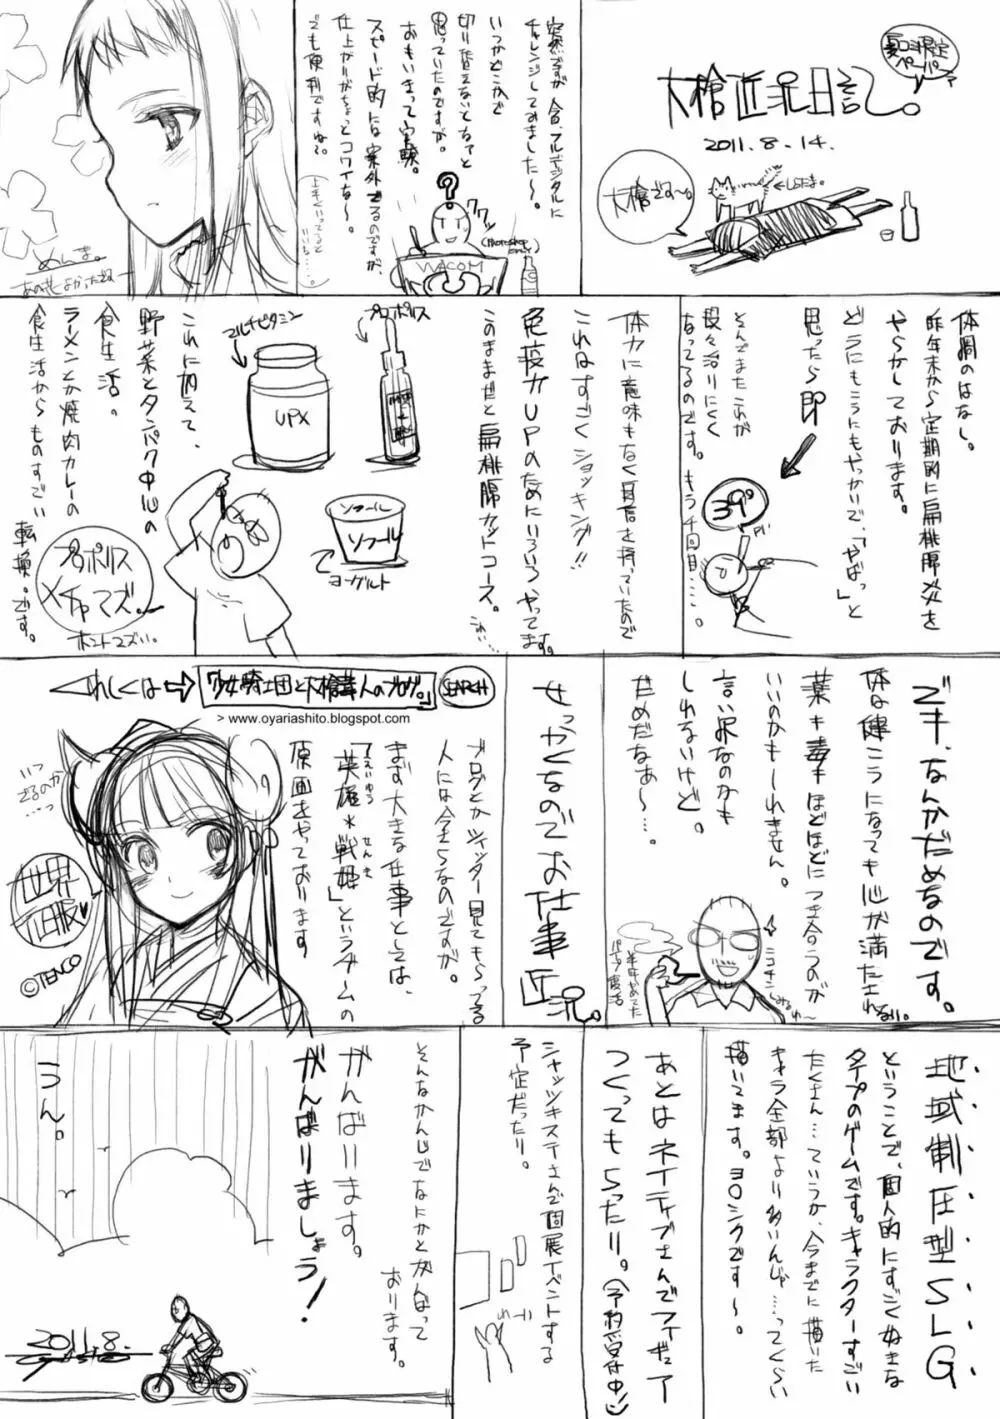 夏コミ限定
ペーパー
大槍近況日記。
2011.8.14.
大槍です〜。
←しらたま。
突然ですが今回フルデジタルに
チャレンジしてみました〜。
いつかどこかで
切り替えないとなァと
思っていたのですが。
おもいきって実験。
スピード的には案外でるのですが、
仕上がりがちょっとコワイな〜
でも便利ですね。
?
(Photoshop
WACOM
めんま。
あの花よかったねー
体調のはなし。
昨年末から定期的に扁桃腺炎を
やらかしております。
どうにもこうにもやっかいで、「やばっ」と
思ったら即
39°
そんでまたこれが
段々治りにくく
なってるのです。
体力に意味もなく自信を持っていたので
これはすごくショッキング!!
免疫力UPのためにいろいろやってます。
このままだと扁桃腺カットコース。
プロポリス
マルチビタミン
UPX
ソフール
ソフール
ヨーグルト
これに加えて、
野菜とタンパク中心の
食生活。
ラーメンとか焼肉カレーの
食生活からものすごい
転換。です。
プロポリス
メチャマズ。
ホントマズい。
でキ、なんかだめなのです。
体は健こうになっても心が満たされない。
薬も毒もほどほどにつき合うのが
いいのかもしれません。
言い訳なのかも
しれないけど。
だめだなぁ〜…。
ニコチンしみるわ〜
せっかくなのでお仕事近況。
くわしくは→「少女騎士団と大槍葦人のブログ。」SEARCH
> www.oyariashito.blogspot.com
ブログとかツイッター見てもらってる
人には今さらなのですが。
まず大きな仕事としては、
「英雄*戦姫」というゲームの
えいゆう
せんき
原画をやっております
いつ
でるのか
…っ
©TENCO
地域制圧型SLG
ということで、個人的にすごく好きな
タイプのゲームです。キャラクターすごい
たくさん…ていうか、今までに描いた
キャラ全部より多いんじゃ…ってくらい
描いてます。ヨロシクです〜。
あとはネイティブさんでフィギュア
つくってもらったり。(予約受付中!)
シャッツキステさんで個展イベントする
予定だったり。
そんなかんじでなにかとがんばって
おります。
がんばります。
がんばりましょう!
うん。
2011.8.